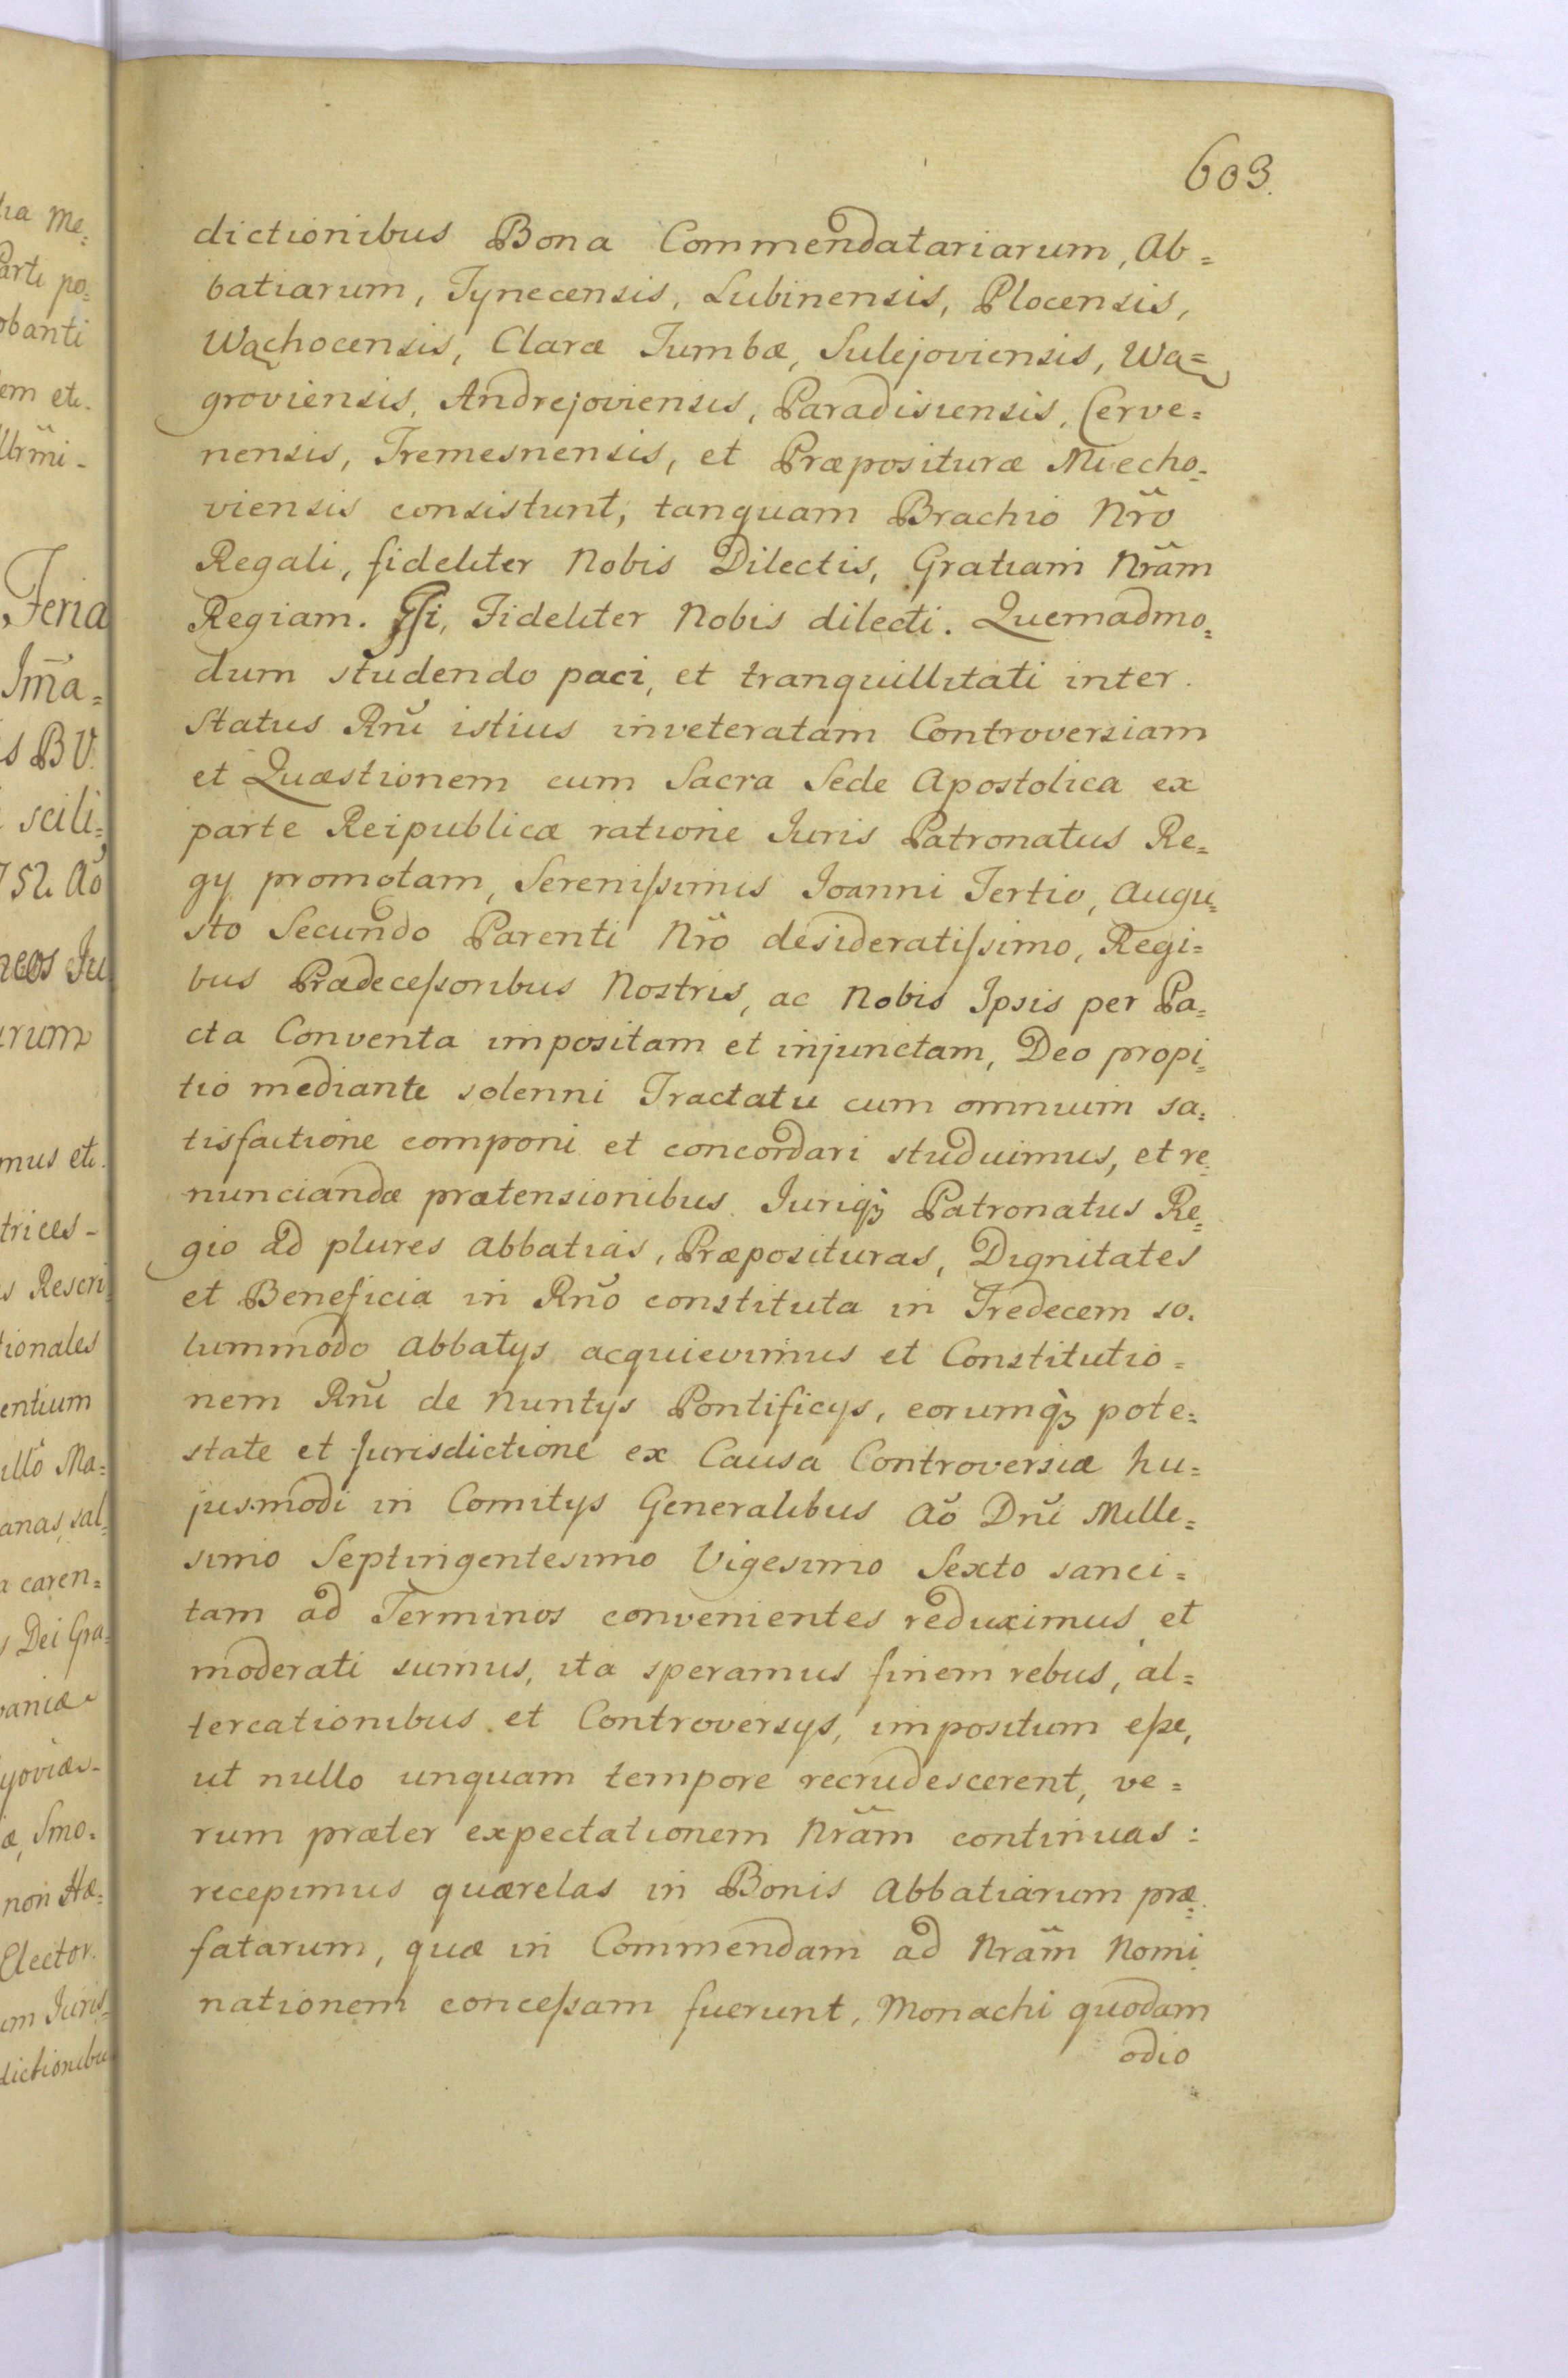 603.
dictionibus Bona Commendatariarum, Ab=
batiarum, Tynecensis, Lubinensis, Plocensis,
Wąchocensis, Claræ Tumbæ, Sulejoviensis, Wą=
groviensis, Andrejoviensis, Paradisiensis, Cerve=
nensis, Tremesnensis, et Præpositura Miecho=
viensis consistunt, tanquam Brachio Nr̃o
Regali, fideliter Nobis Dilectis, Gratiam Nr̃am
Regiam. Gſi, Fideliter Nobis dilecti. Quemadmo=
dum studendo paci, et tranquillitati inter
Status Rñi istius inveteratam Controversiam
et Quæstionem cum Sacra Sede Apostolica ex
parte Reipublicæ ratione Juris Patronatus Re=
gy promotam, Sereniſsimis Joanni Tertio, Augu=
sto Secundo Parenti Nr̃o desideratiſsimo, Regi=
bus Prædeceſsoribus Nostris, ac Nobis Ipsis per Pa=
cta Conventa impositam et injunctam, Deo propi=
tio mediante solenni Tractatu cum omnium sa=
tisfactione componi et concordari studuimus, et re=
nunciandæ prætensionibus Juriqꝫ Patronatus Re=
gio ad plures Abbatias, Præposituras, Dignitates
et Beneficia in Rño constituta in Tredecem so=
lummodo Abbatys acquievimus et Constitutio=
nem Rñi de Nuntys Pontificys, eorumqꝫ pote=
state et Jurisdictione ex Causa Controversiæ hu=
jusmodi in Comitys Generalibus Aõ Dñi Mille=
simo Septingentesimo Vigesimo Sexto sanci=
tam ad Terminos convenientes reduximus et
moderati sumus, ita speramus finem rebus, al=
tercationibus et Controversys, impositum eſse,
ut nullo unquam tempore recrudescerent, ve=
rum præter expectationem Nr̃am continuas:
recepimus quærelas in Bonis Abbatiarum præ=
fatarum, quæ in Commendam ad Nr̃am Nomi
nationem conceſsam fuerunt, Monachi quodam
odio